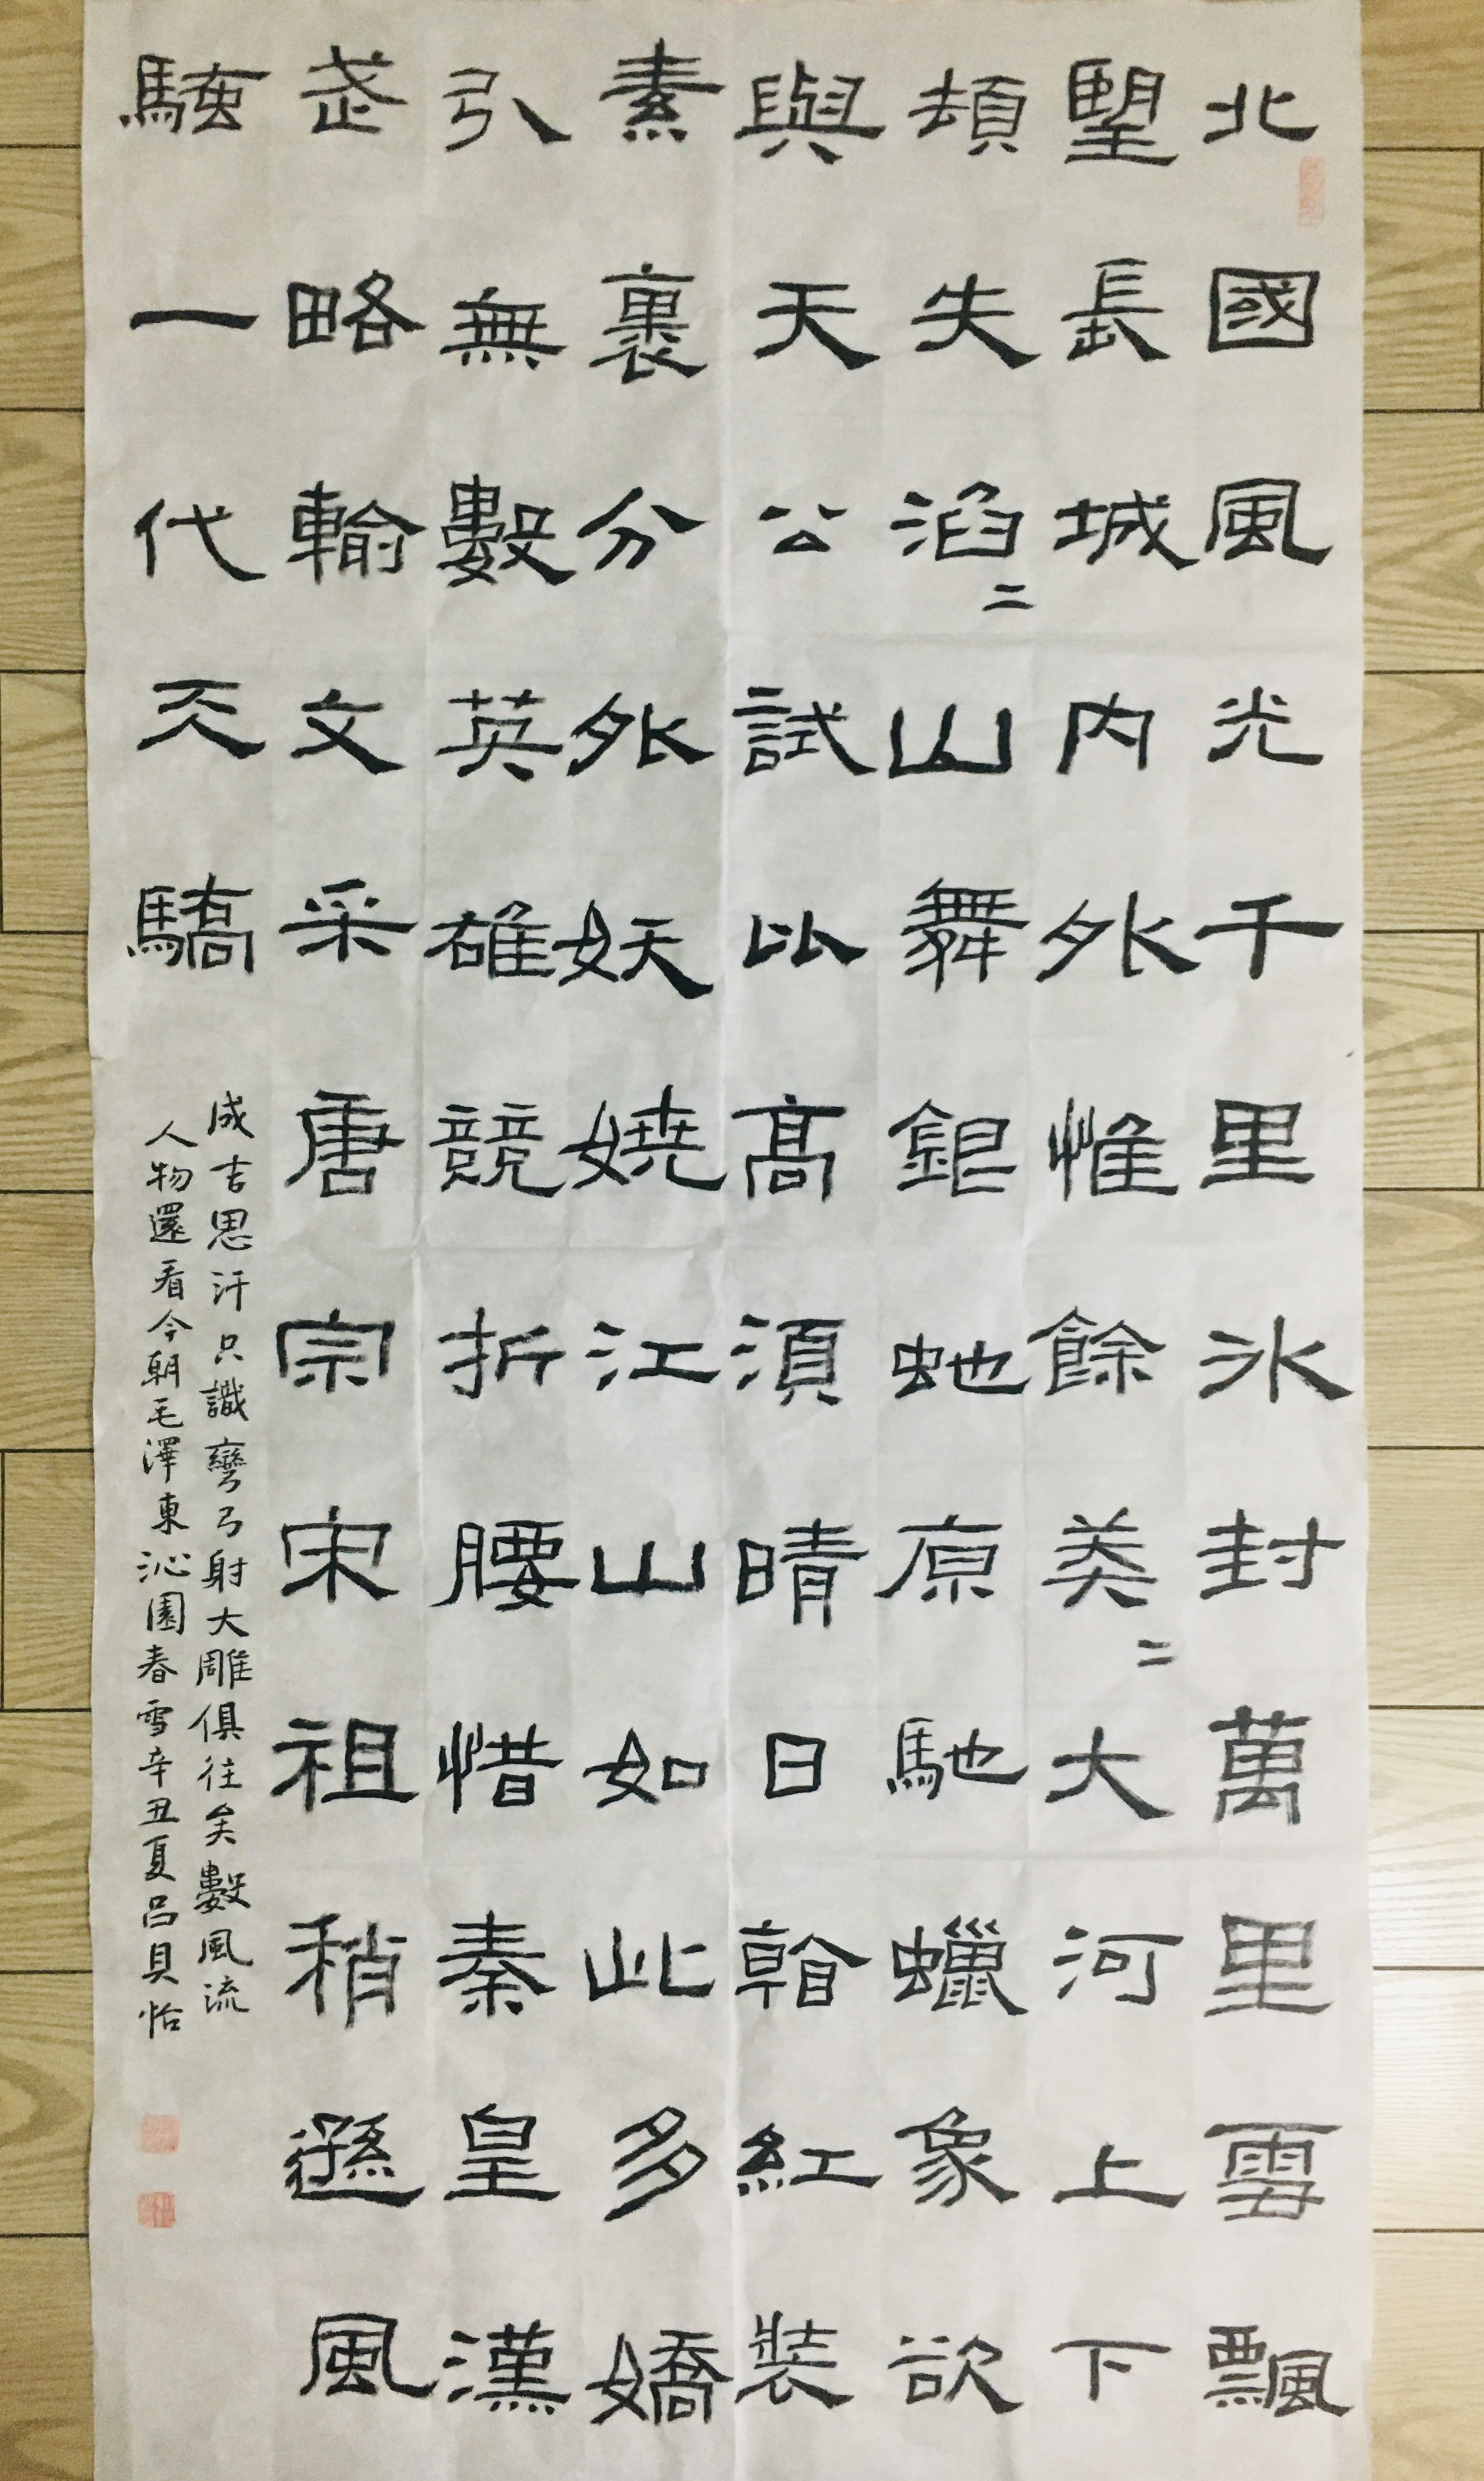 北國風光千里冰封萬里雪飄
望長城内外惟餘莽二大河上下
頓失滔二山舞銀虵原馳蠟象欲
與天公試比高須晴日看紅裝
素裹分外妖嬈江山如此多嬌
引無數英雄競折腰惜秦皇漢
武略輸文采唐宗宋祖稍遜風
騷一代天驕
成吉思汗只識彎弓射大雕俱往矣數風流
人物還看今朝毛澤東沁園春雪辛丑夏呂貝怡